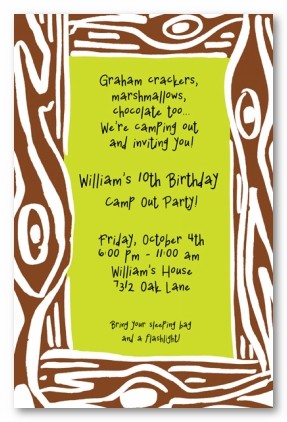 Graham crackers,
marshmallows,
chocolate too...
We're camping out
and inviting you!
William's 10th Birthday
Camp Out Party!
Friday, October 4th
6:00 pm - 11:00 am
William's House
7312 Oak Lane
Bring your sleeping bag
and a flashlight!